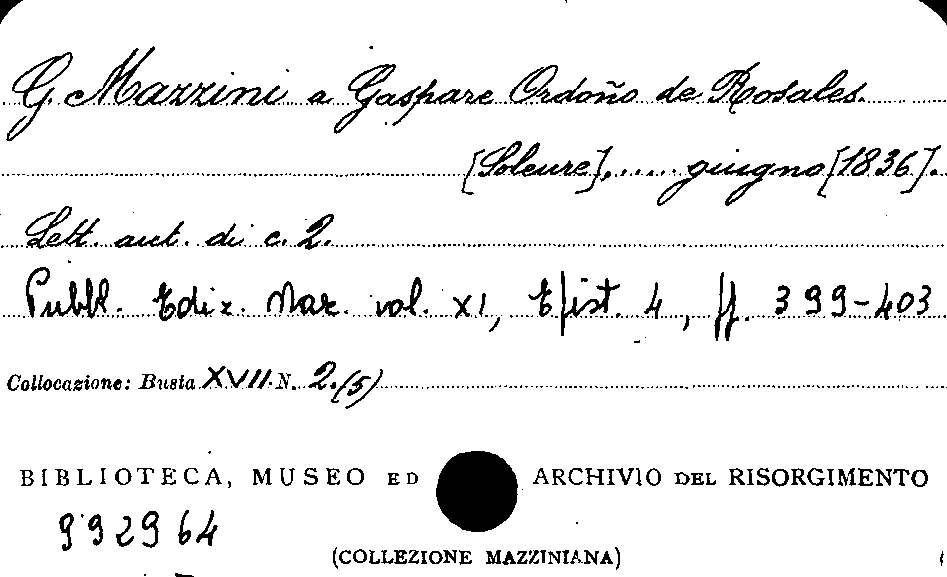 G. Mazzini a Gaspare Ordoño de Rosales.
[Soleure], ..... giugno [1836].
Lett. aut. di c. 2.
Pubbl. Ediz. Naz. vol. XI, Epist. 4, pp. 399-403
Collocazione: Busta XVII. N. 2.(5)
BIBLIOTECA, MUSEO ED ARCHIVIO DEL RISORGIMENTO
992964
(COLLEZIONE MAZZINIANA)